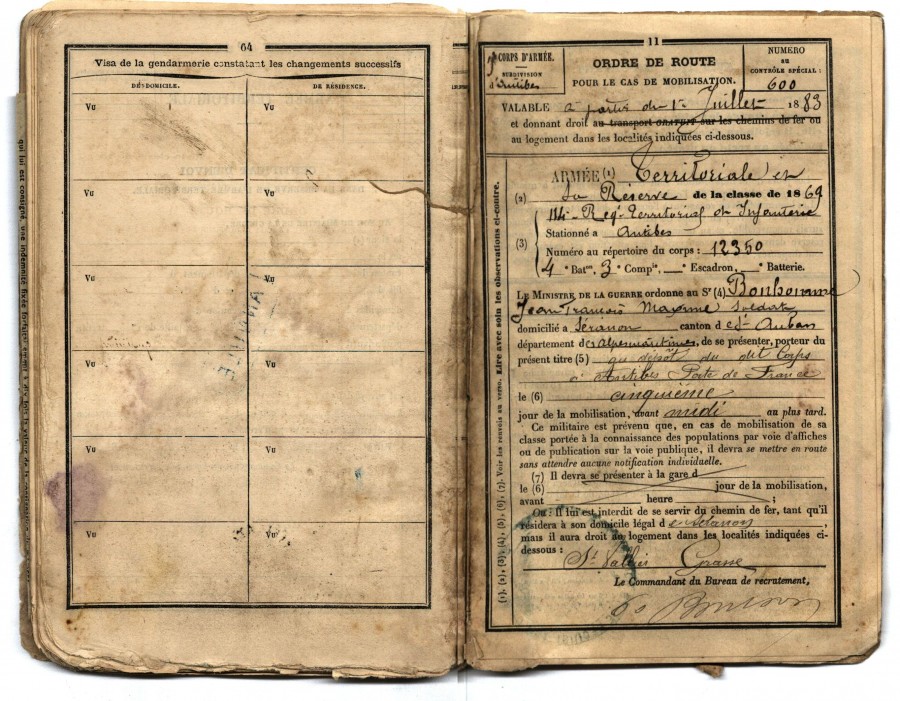 64
Visa de la gendarmerie constatant les changements successifs
DE DOMICILE. DE RÉSIDENCE.
Vu Vu
Vu Vu
Vu Vu
Vu Vu
Vu Vu
Vu Vu
11
CORPS D'ARMÉE.
SUBDIVISION
d'Antibes
ORDRE DE ROUTE
POUR LE CAS DE MOBILISATION.
NUMÉRO
au
CONTRÔLE SPÉCIAL :
600
VALABLE à partir du 1er Juillet 1883
et donnant droit au transport GRATUIT sur les chemins de fer ou
au logement dans les localités indiquées ci-dessous.
ARMÉE (1) Territoriale et
(2) Sa Réserve de la classe de 1869
114e Reg. Territorial d'Infanterie
(3) Stationné à Antibes
Numéro au répertoire du corps : 12350
4e Baton, 3 Compie, e Escadron, e Batterie.
LE MINISTRE DE LA GUERRE ordonne au Sr (4) Bonhomme
Jean François Maxime Soldat
domicilié à Séranon canton de St Auban
département des alpes maritimes, de se présenter, porteur du
présent titre (5) au dépôt du dit Corps
à Antibes Porte de France
le (6) cinquième
jour de la mobilisation, avant midi au plus tard.
Ce militaire est prévenu que, en cas de mobilisation de sa
classe portée à la connaissance des populations par voie d'affiches
ou de publication sur la voie publique, il devra se mettre en route
sans attendre aucune notification individuelle.
(7) Il devra se présenter à la gare d
le (6) jour de la mobilisation,
avant heure ;
Ou : Il lui est interdit de se servir du chemin de fer, tant qu'il
résidera à son domicile légal de Séranon,
mais il aura droit au logement dans les localités indiquées ci-
dessous :
St Vallier Grasse
Le Commandant du Bureau de recrutement,
(1), (2), (3), (4), (5), (6), (7). Voir les renvois au verso. Lire avec soin les observations ci-contre.